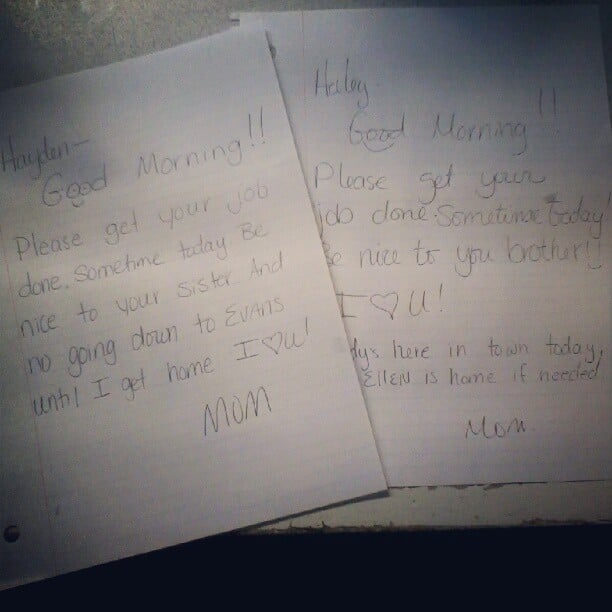 Hayden—
Good Morning!!
Please get your job
done. Sometime today Be
nice to your sister And
no going down to EVANS
until I get home I ♡ U!
MOM
Haley
Good Morning!!
Please get your
job done. Sometime today!
Be nice to you brother!!
I ♡ U!
here in town today,
EllEN is home if needed
Mom